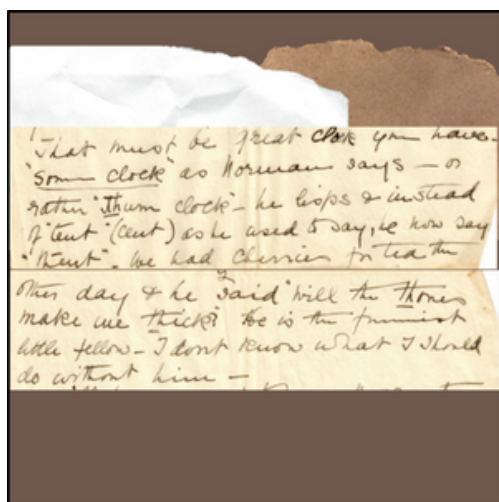 That must be great clock you have -
"Some clock" as Norman says — or
rather "Thum clock" - he lisps & instead
of "tent" (cent) as he used to say, he now say
"thent". We had cherries for tea the
other day & he said "will the thones
make me thick? He is the funniest
little fellow - I don't know what I should
do without him —